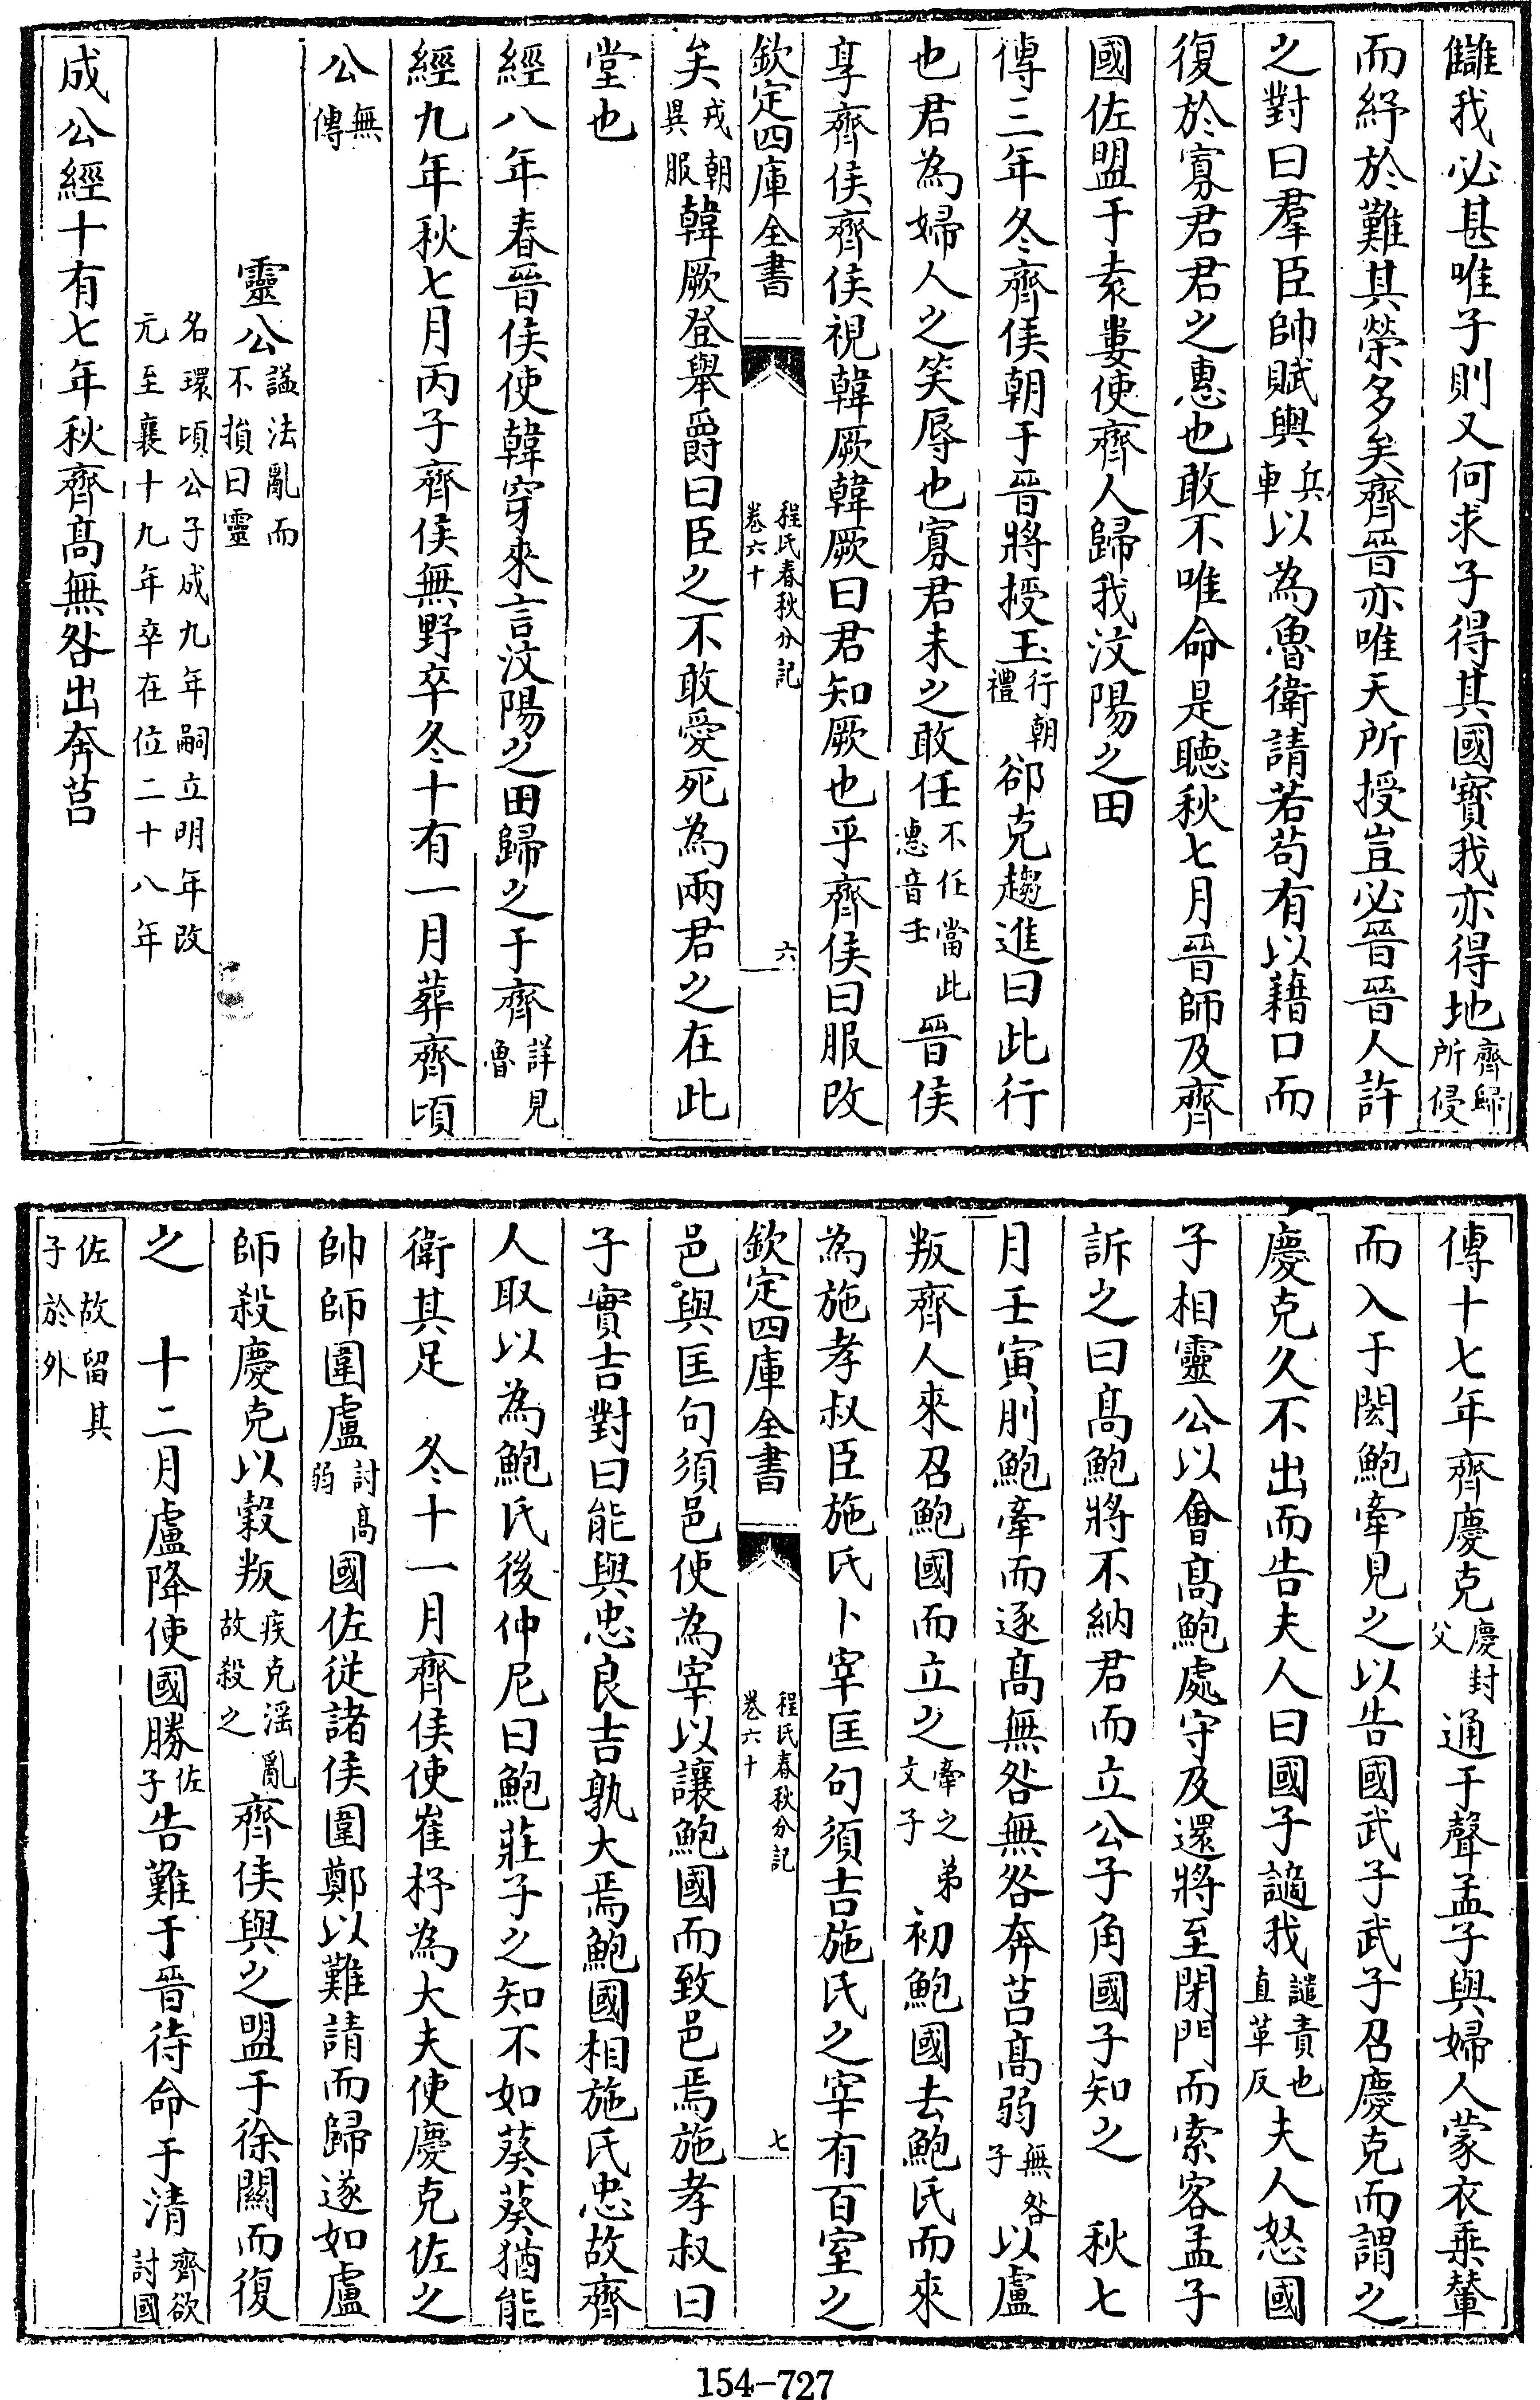 讎我必甚唯子則又何求子得其國寳我亦得地齊歸所侵
而紓於難其榮多矣齊晉亦唯天所授豈必晉晉人許
之對曰羣臣帥賦輿兵車以為魯衛請若苟有以藉口而
復於寡君君之惠也敢不唯命是聽秋七月晉師及齊
國佐盟于袁婁使齊人歸我汶陽之田
傳三年冬齊侯朝于晉將授玉行朝禮郤克趨進曰此行
也君為婦人之笑辱也寡君未之敢任不任當此惠音壬晉侯
享齊侯齊侯視韓厥韓厥曰君知厥也乎齊侯曰服改
欽定四庫全書 程氏春秋分記 卷六十 六
矣戎朝異服韓厥登舉爵曰臣之不敢愛死為兩君之在此
堂也
經八年春晉侯使韓穿來言汶陽之田歸之于齊詳見魯
經九年秋七月丙子齊侯無野卒冬十有一月葬齊頃
公無傳
靈公諡法亂而不損曰靈
名環頃公子成九年嗣立明年改
元至襄十九年卒在位二十八年
成公經十有七年秋齊髙無咎出奔莒
傳十七年齊慶克慶封父通于聲孟子與婦人蒙衣乗輦
而入于閎鮑牽見之以告國武子武子召慶克而謂之
慶克久不出而告夫人曰國子謫我譴責也直革反夫人怒國
子相靈公以會髙鮑處守及還將至閉門而索客孟子
訴之曰髙鮑將不納君而立公子角國子知之 秋七
月壬寅刖鮑牽而逐髙無咎無咎奔莒髙弱無咎子以盧
叛齊人來召鮑國而立之牽之弟文子初鮑國去鮑氏而來
為施孝叔臣施氏卜宰匡句須吉施氏之宰有百室之
欽定四庫全書 程氏春秋分記 卷六十 七
邑與匡句須邑使為宰以讓鮑國而致邑焉施孝叔曰
子實吉對曰能與忠良吉孰大焉鮑國相施氏忠故齊
人取以為鮑氏後仲尼曰鮑莊子之知不如葵葵猶能
衛其足 冬十一月齊侯使崔杼為大夫使慶克佐之
帥師圍盧討髙弱國佐從諸侯圍鄭以難請而歸遂如盧
師殺慶克以榖叛疾克滛亂故殺之齊侯與之盟于徐關而復
之 十二月盧降使國勝佐子告難于晉待命于清齊欲討國
佐故留其子於外
154-727